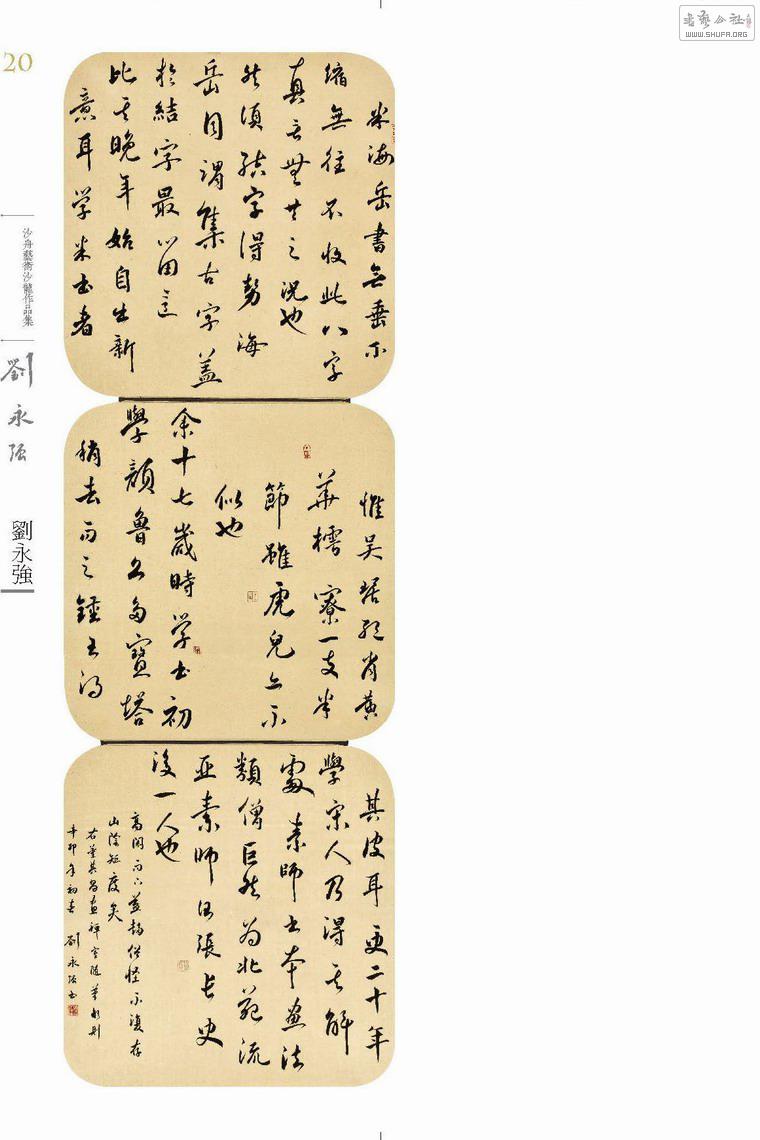 書藝公社
WWW.SHUFA.ORG
20
沙舟藝術沙龍作品集
劉永强
劉永強
米海岳書無垂不
縮無往不收此八字
真言無等之況也
然須結字得勢海
岳自謂集古字蓋
於結字最留意
比其晚年始自出新
意耳学米书者
惟吴琚绝肖黄
華樗寮一支半
節雖虎兒亦不
似也
余十七歲時学书初
學顔魯公多寶塔
稍去而之鍾王得
其皮耳更二十年
學宋人乃得其解
處素師书本畫法
類僧巨然为北苑流
亚素師以張長史
後一人也
高閑而下益趨俗怪不復存
山陰矩度矣
右董其昌畫禅室随筆數則
辛卯年初春劉永强书